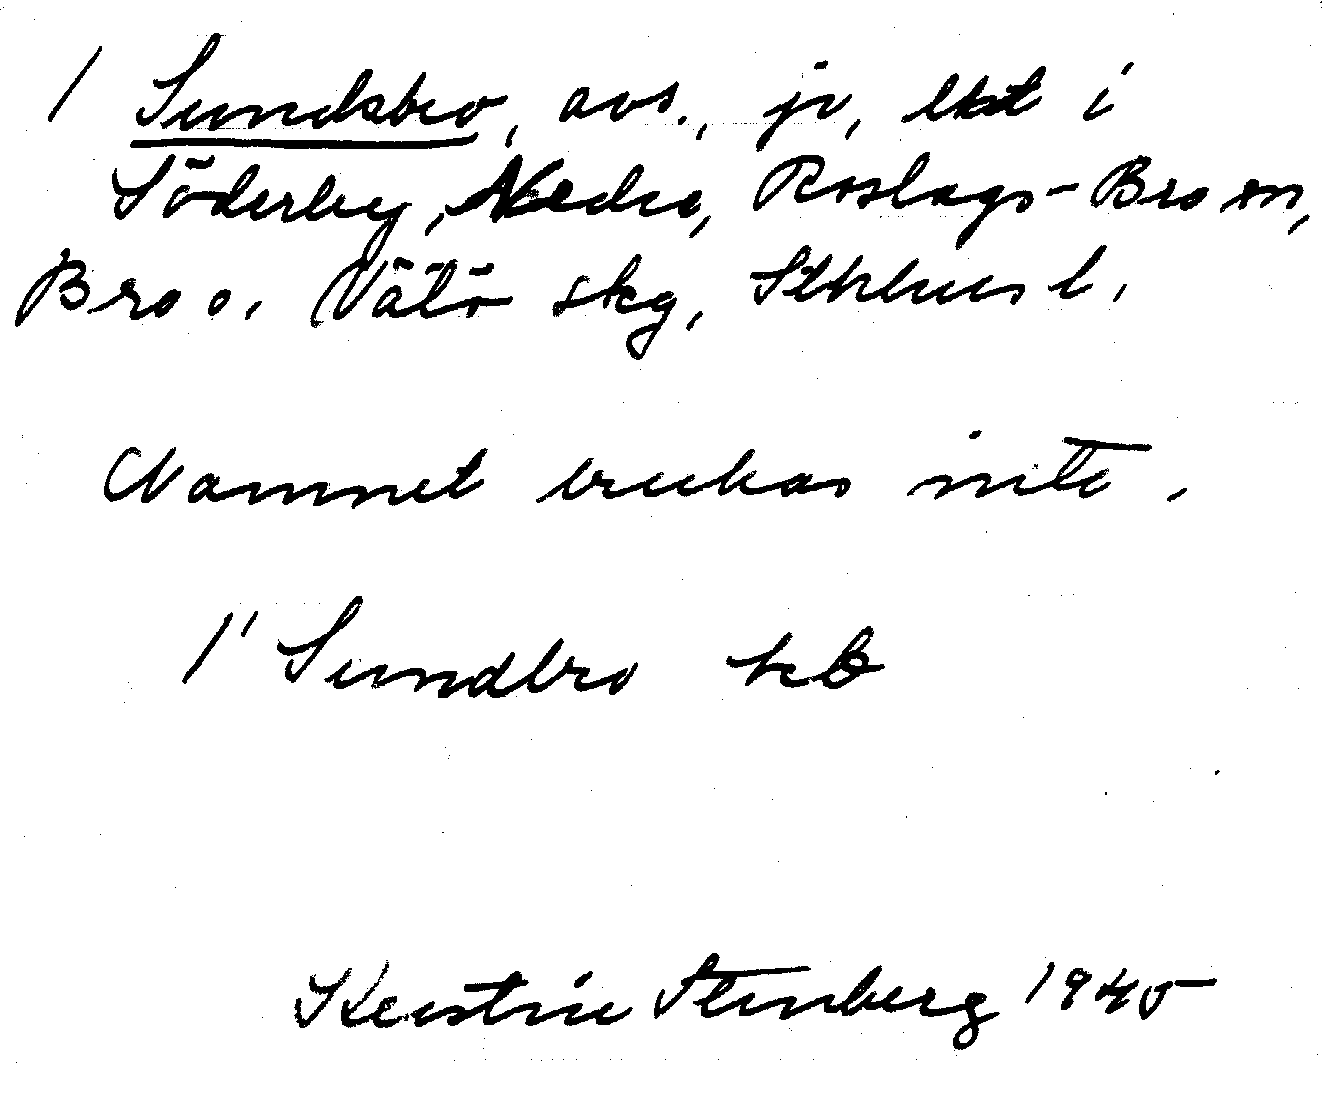 / Sundsbro, avs., jv, lht i
Söderby, Nedre, Roslags-Bro sn,
Bro o. Vätö skg, Sthlms l.
Namnet brukas inte.
/' Sundbro kb
Kerstin Stenberg 1945